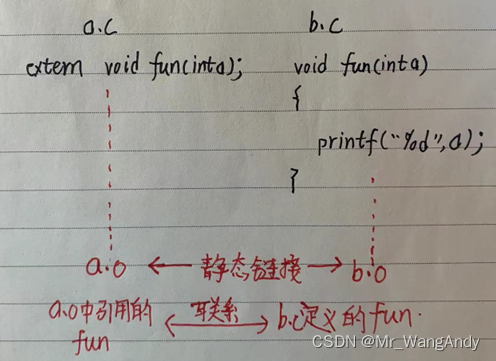 a.c b.c
extem void fun(inta); void fun(inta)
{
printf("%d",a);
}
a.o 静态链接 b.o
a.o中引用的 互关系 b.c定义的fun.
fun
CSDN @Mr_WangAndy